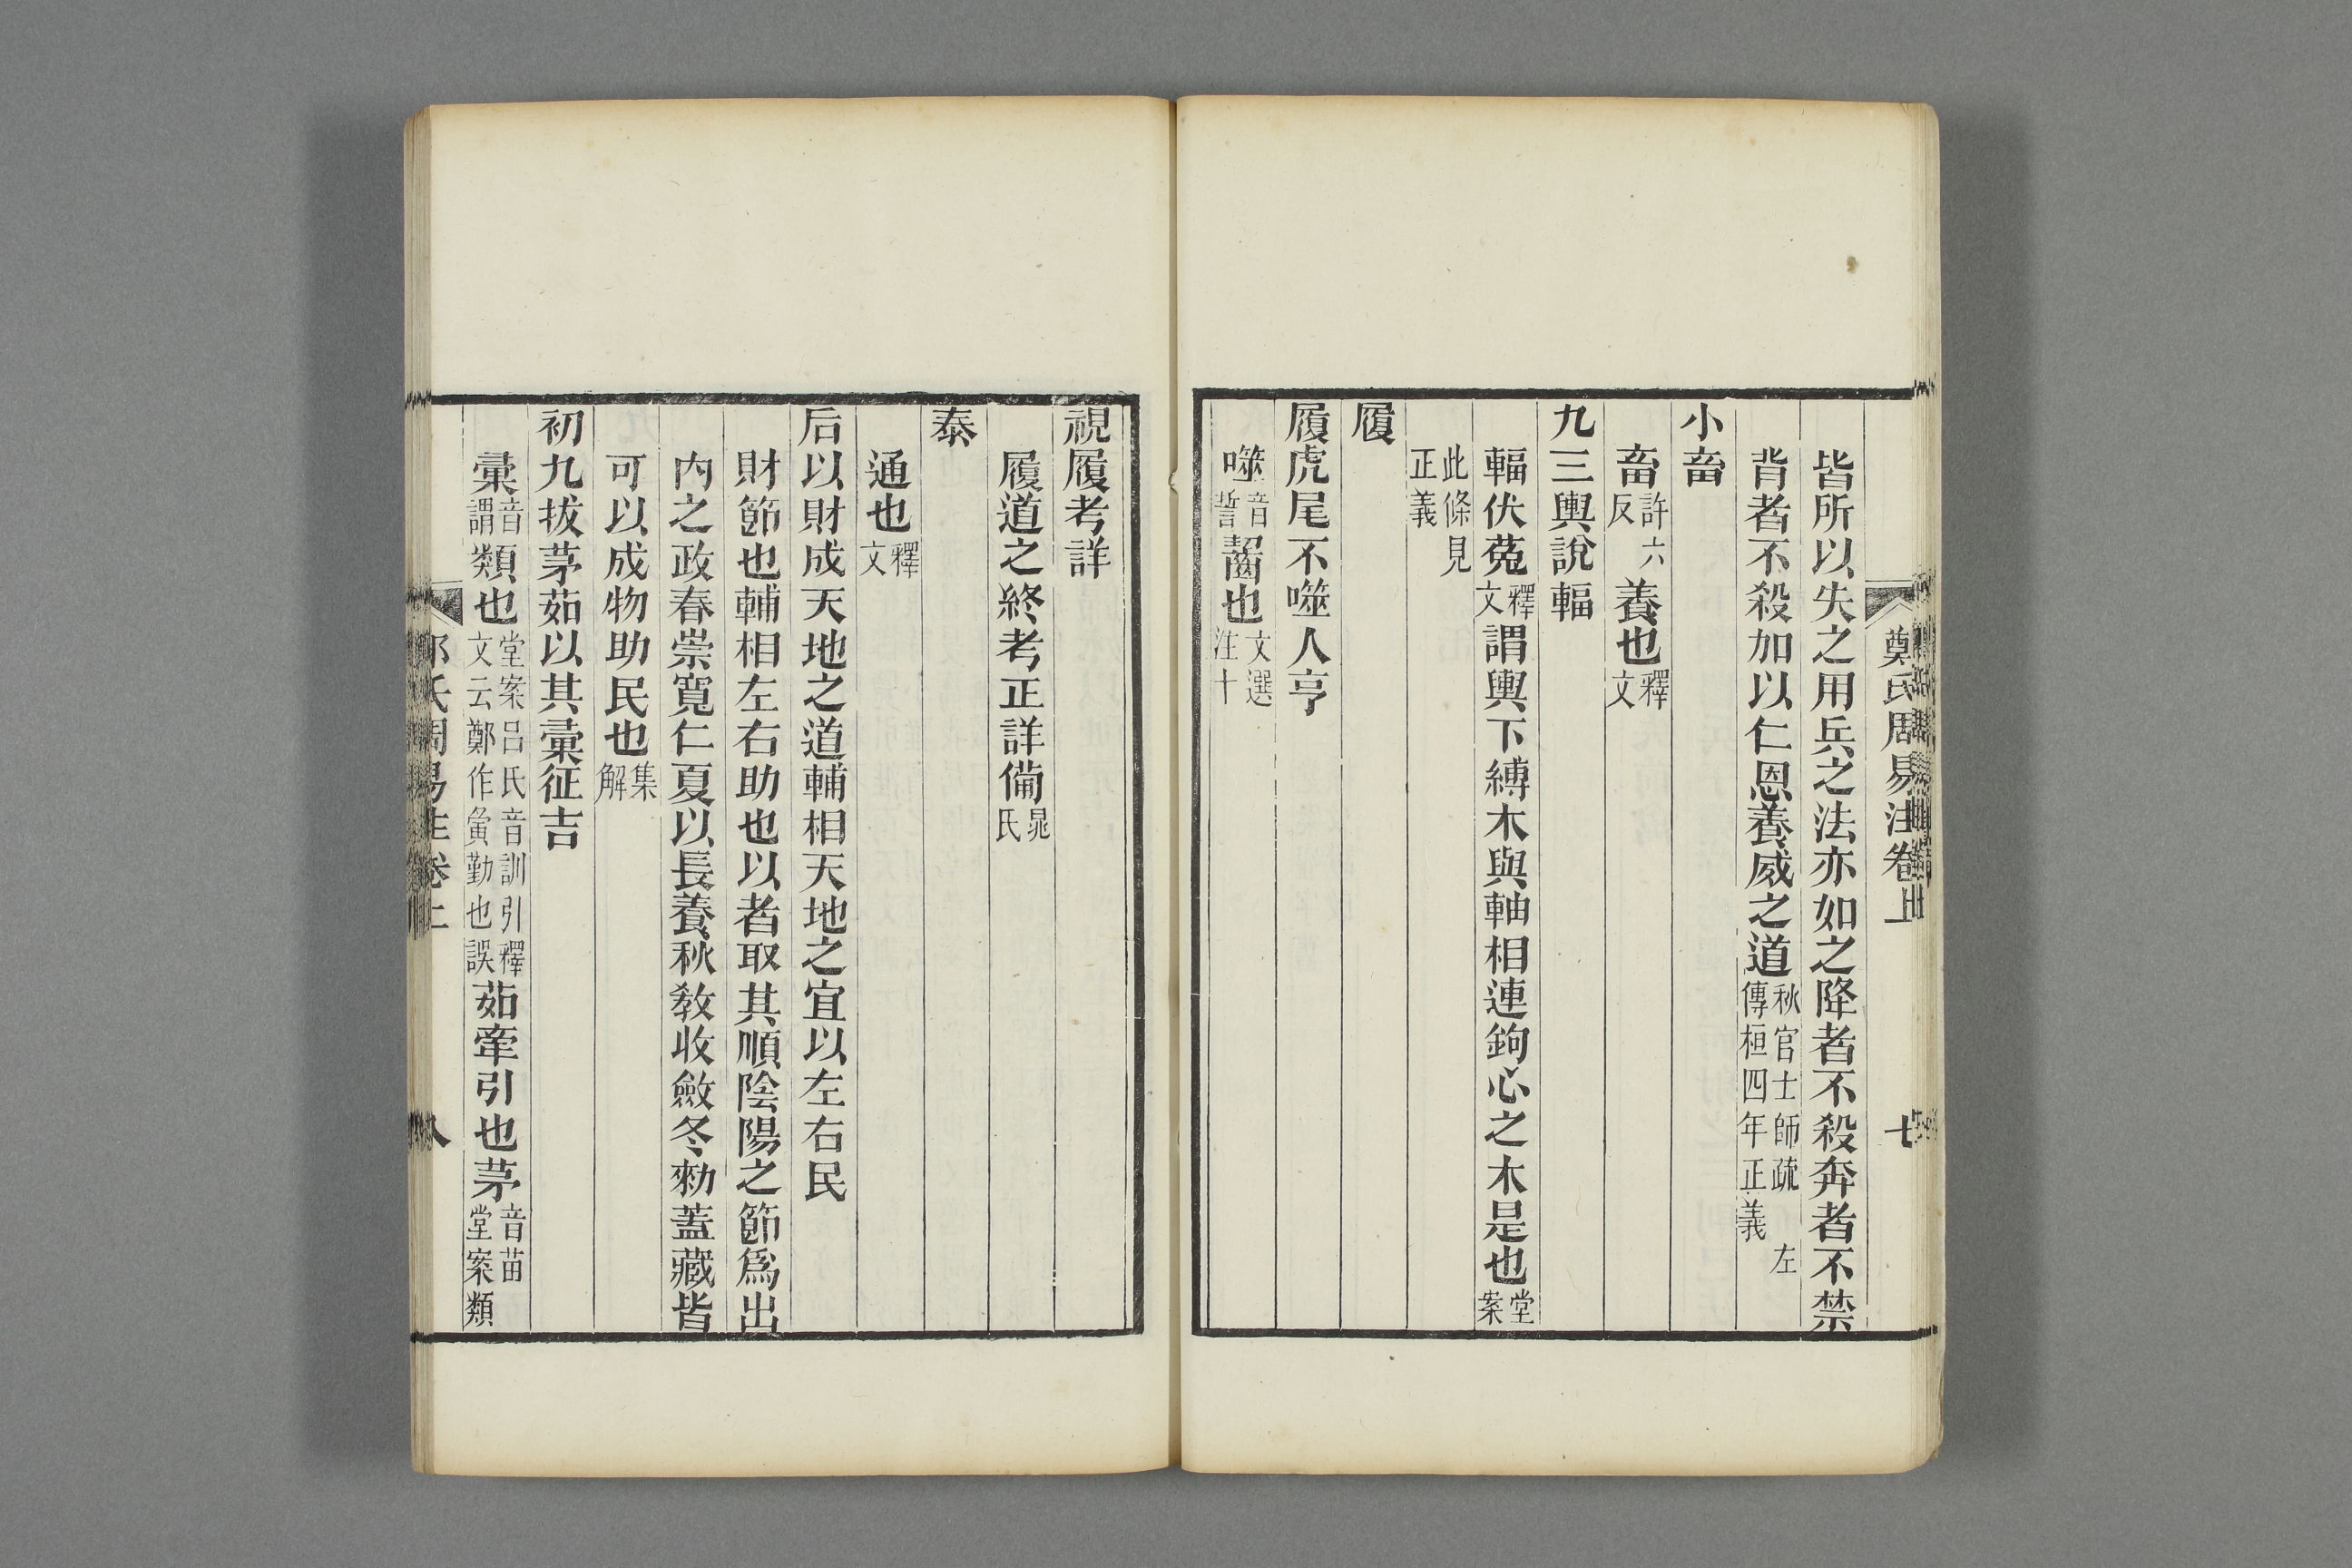 鄭氏周易注卷上 七
皆所以失之用兵之法亦如之降者不殺奔者不禁
背者不殺加以仁恩養威之道秋官士師疏 左傳桓四年正義
小畜
畜許六反養也釋文
九三輿說輻
輻伏菟釋文謂輿下縛木與軸相連鉤心之木是也堂案
此條見正義
履
履虎尾不噬人亨
噬音誓齧也文選注十
視履考詳
履道之終考正詳備晁氏
泰
通也釋文
后以財成天地之道輔相天地之宜以左右民
財節也輔相左右助也以者取其順陰陽之節爲出
內之政春崇寬仁夏以長養秋敎收斂冬勑蓋藏皆
可以成物助民也集解
初九拔茅茹以其彚征吉
彚音謂類也堂案呂氏音訓引釋文云鄭作夤勤也誤茹牽引也茅音苗堂案類
氏周易注卷上 八